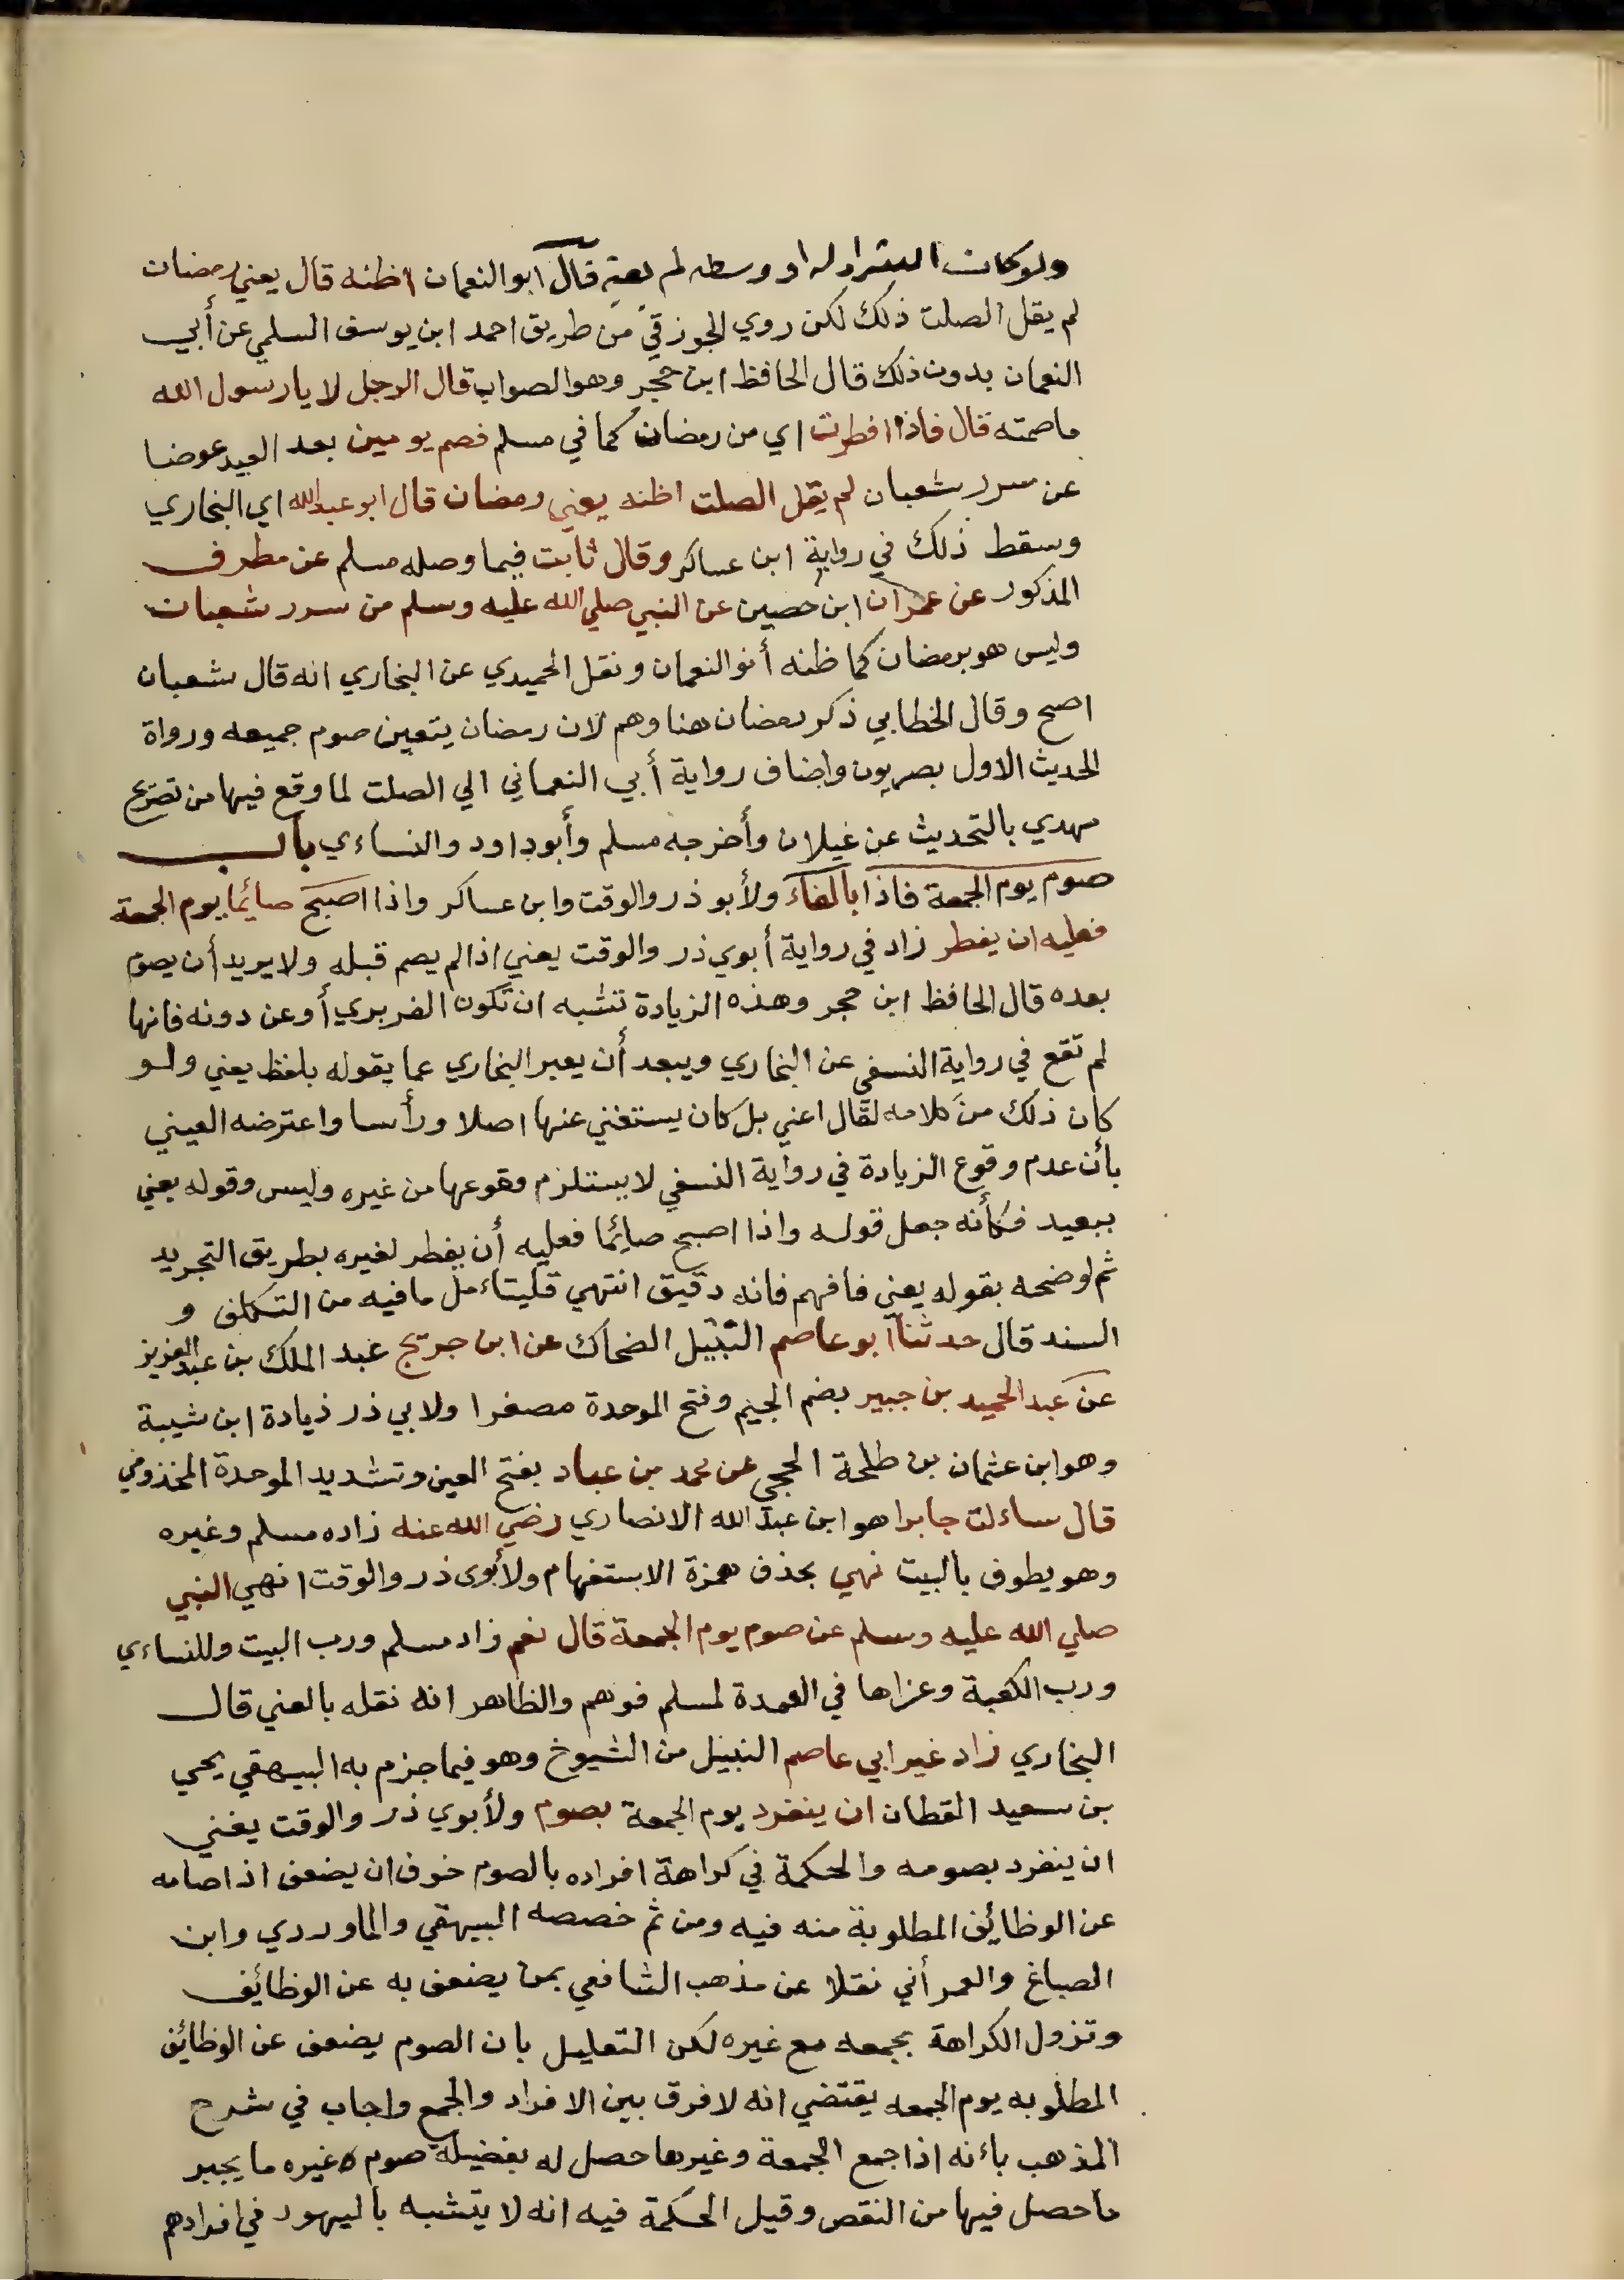 ولو كانت السراوله او وسطه لم يفته قال ابو النعمان اظنه قال يعني رمضان
لم يقل الصلت ذلك لكن روي الجوزقي من طريق احمد ابن يوسف السلمي عن أبي
النعمان بدون ذلك قال الحافظ ابن حجر وهو الصواب قال الرجل لا يا رسول الله
ماصمته قال فاذا افطرت اي من رمضان كما في مسلم فصم يومين بعد العيد عوضا
عن سرر شعبان لم يقل الصلت اظنه يعني رمضان قال ابو عبدالله اي البخاري
وسقط ذلك في رواية ابن عساكر وقال ثابت فيما وصله مسلم عن مطرف
المذكور عن عمران ابن حصين عن النبي صلي الله عليه وسلم من سرر شعبان
وليس هو برمضان كما ظنه أبو النعمان ونقل الحميدي عن البخاري انه قال شعبان
اصح وقال الخطابي ذكر رمضان هنا وهم لان رمضان يتعين صوم جميعه ورواة
الحديث الاول بصريون واضاف رواية أبي النعماني الي الصلت لما وقع فيها من تصرع
مهدي بالتحديث عن غيلان وأخرجه مسلم وأبو داود والنساءي باب
صوم يوم الجمعة فاذا بالفاء ولأبو ذر والوقت وابن عساكر واذا اصبح صائما يوم الجمعة
فعليه ان يفطر زاد في رواية أبوي ذر والوقت يعني اذا لم يصم قبله ولا يريد أن يصوم
بعده قال الحافظ ابن حجر وهذه الزيادة تشبه ان تكون الفربري أو عن دونه فانها
لم تقع في رواية النسفي عن البخاري ويبعد أن يعبر البخاري عما يقوله بلفظ يعني ولو
كان ذلك من كلامه لقال اعني بل كان يستغني عنها اصلا ورأسا واعترضه العيني
بأن عدم وقوع الزيادة في رواية النسفي لا يستلزم وقوعها من غيره وليس وقوله يعني
ببعيد فكأنه جعل قوله واذا اصبح صائما فعليه أن يفطر لغيره بطريق التجريد
ثم اوضحه بقوله يعني فافهم فانه دقيق انتهي فليتاءمل مافيه من التكلف و
السند قال حدثنا ابو عاصم النبيل الضحاك عن ابن جريج عبد الملك بن عبد العزيز
عن عبد الحميد بن جبير بضم الجيم وفتح الموحدة مصغرا ولابي ذر زيادة ابن شيبة
وهو ابن عثمان بن طلحة الحجبي عن محمد بن عباد بفتح العين وتشديد الموحدة المخزومي
قال ساءلت جابرا هو ابن عبد الله الانصاري رضي الله عنه زاده مسلم وغيره
وهو يطوف بالبيت نهي بحذف همزة الاستفهام ولأبوى ذر والوقت انهي النبي
صلي الله عليه وسلم عن صوم يوم الجمعة قال نعم زاد مسلم ورب البيت وللنساءي
ورب الكعبة وعزاها في العمدة لمسلم فوهم والظاهر انه نقله بالمعني قال
البخاري زاد غير ابي عاصم النبيل من الشيوخ وهو فيما جزم به البيهقي يحيي
بن سعيد القطان ان ينفرد يوم الجمعة بصوم ولأبوي ذر والوقت يعني
ان ينفرد بصومه والحكمة في كراهة افراده بالصوم خوف ان يضعف اذا صامه
عن الوظائف المطلوبة منه فيه ومن ثم خصصه البيهقي والماوردي وابن
الصباغ والعمرأني نقلا عن مذهب الشافعي بمن يضعف به عن الوظائف
وتزول الكراهة بجمعه مع غيره لكن التعليل بان الصوم يضعف عن الوظائف
المطلوبه يوم الجمعه يقتضي انه لا فرق بين الافراد والجمع واجاب في شرح
المذهب باءنه اذا جمع الجمعة وغيرها حصل له بفضيلة صوم غيره ما يجبر
ما حصل فيها من النقص وقيل الحكمة فيه انه لا يتشبه باليهود في افرادهم